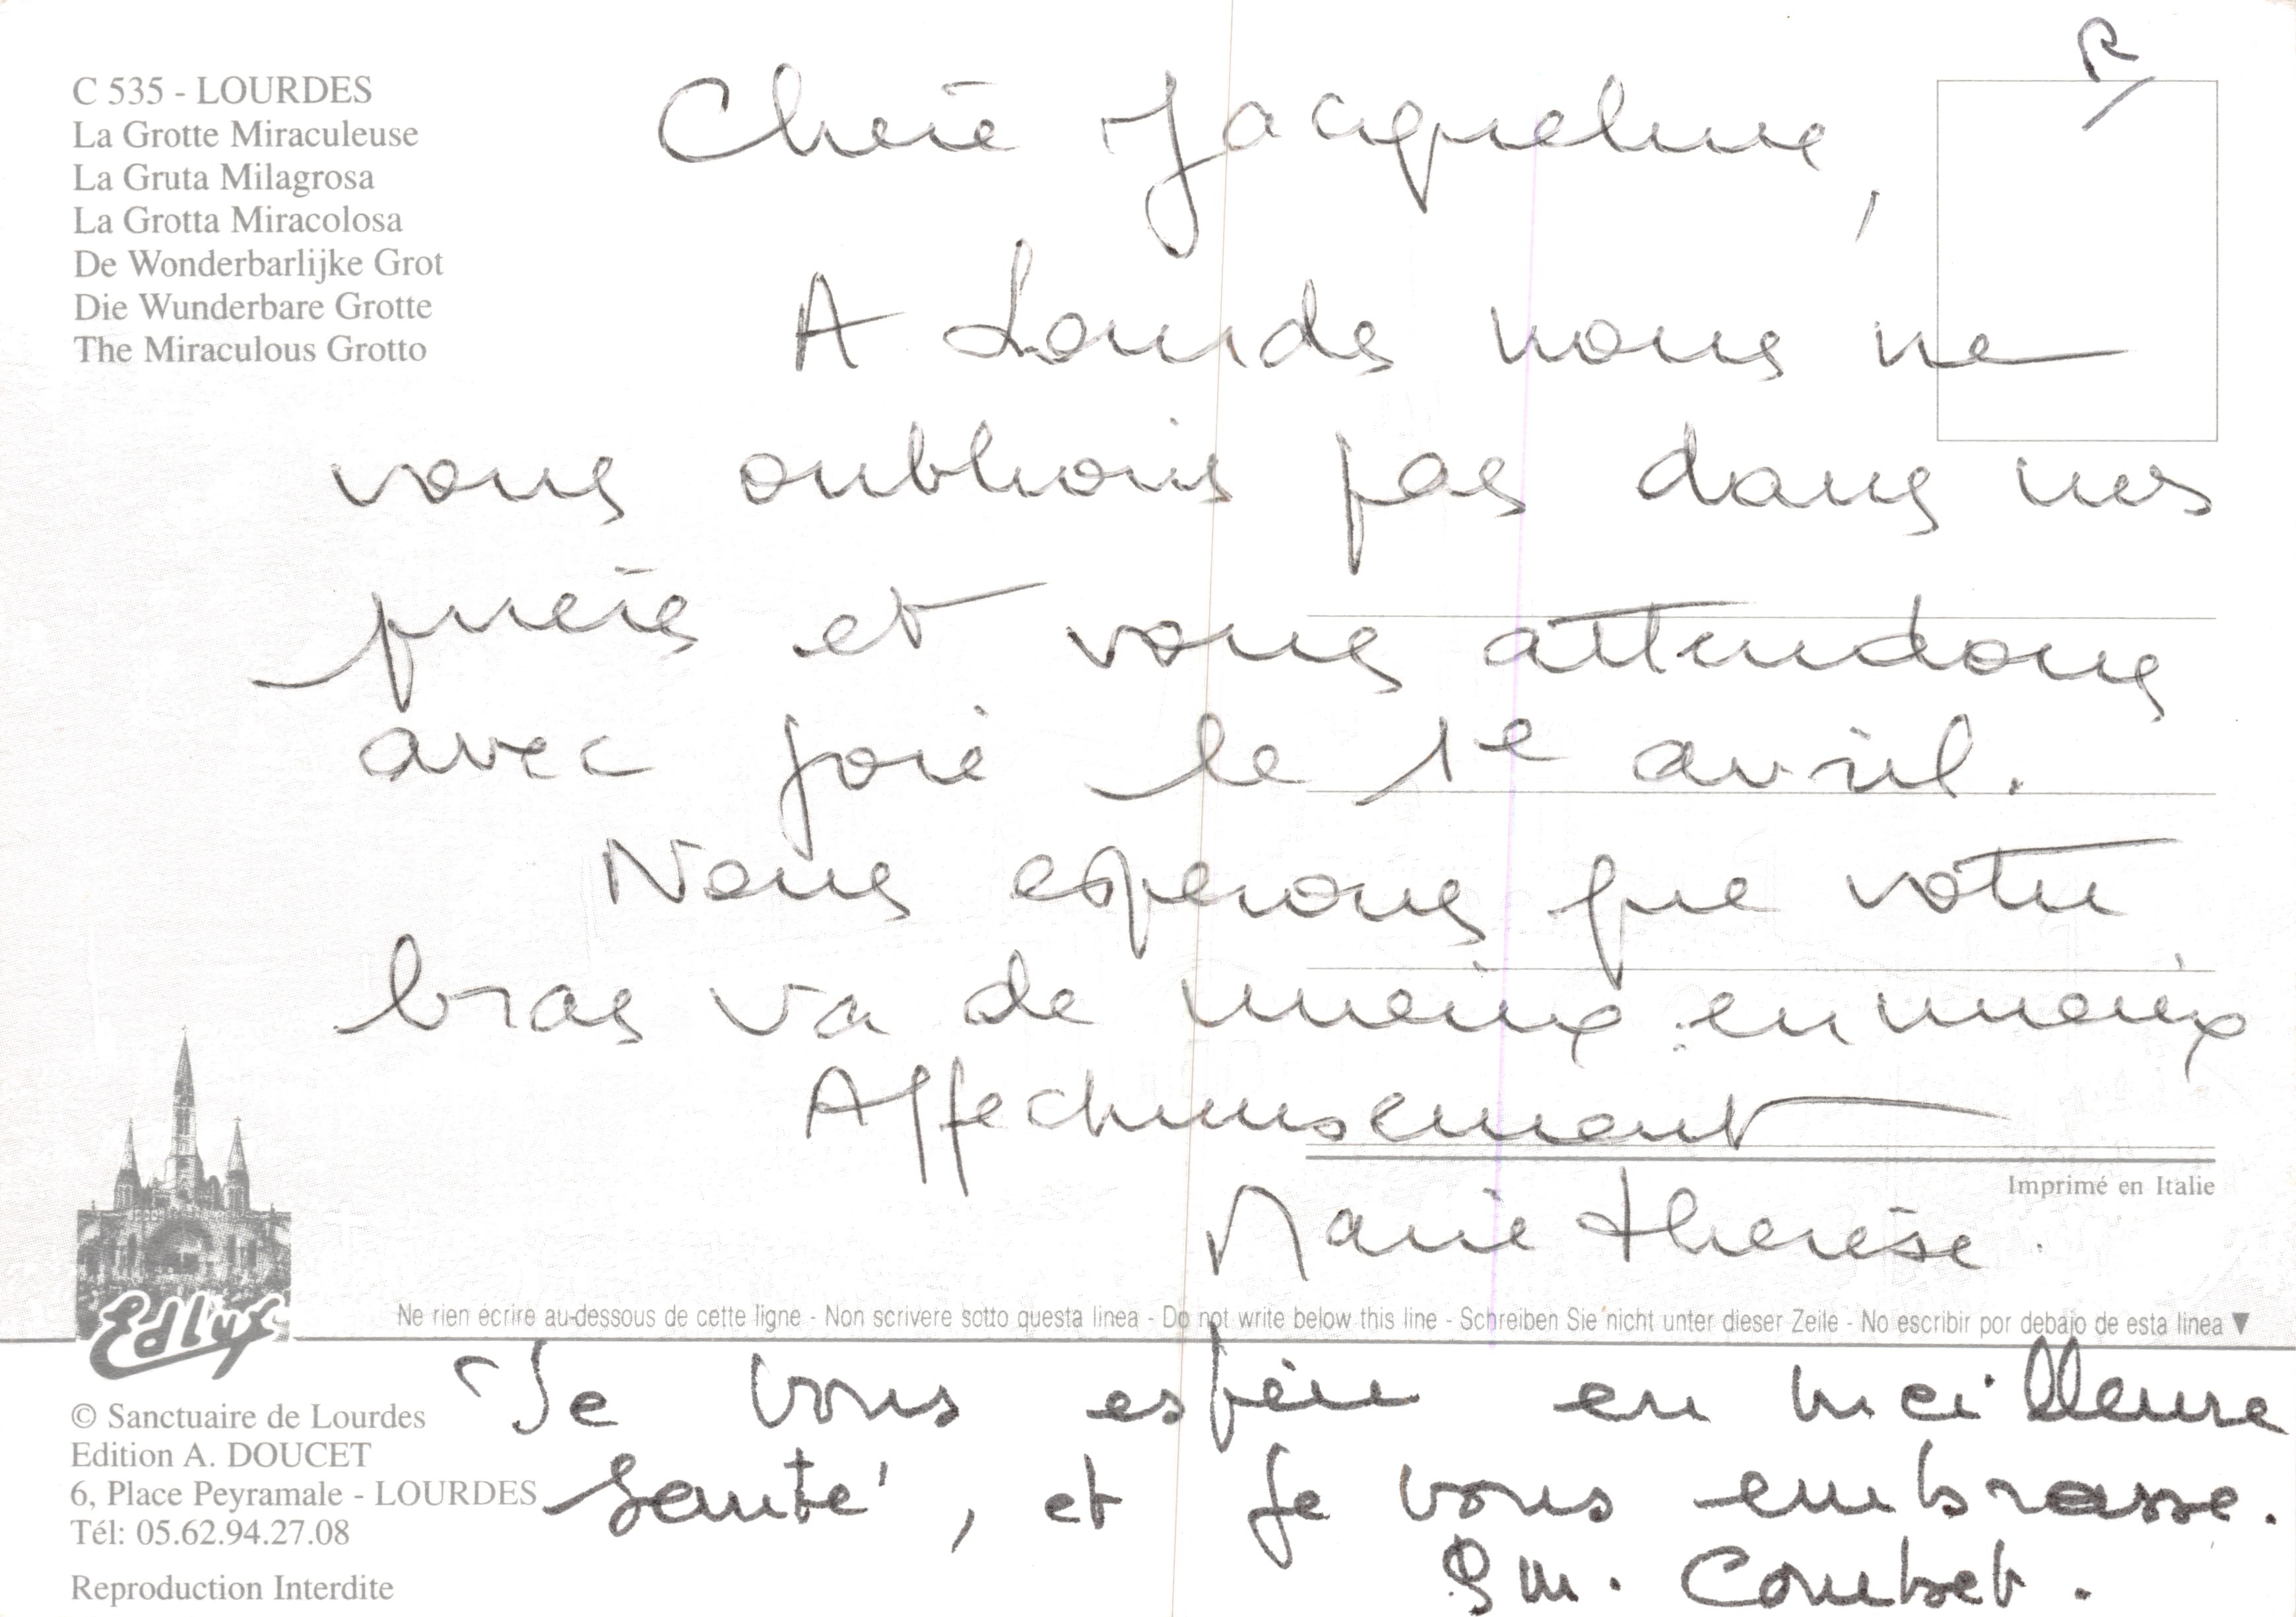 C 535 - LOURDES
La Grotte Miraculeuse
La Gruta Milagrosa
La Grotta Miracolosa
De Wonderbarlijke Grot
Die Wunderbare Grotte
The Miraculous Grotto
R
Chère Jacqueline,
A Lourdes nous ne
vous oublions pas dans nos
prières et vous attendons
avec joie le 1e avril.
Nous esperons que votre
bras va de mieux en mieux
Affectueusement
Marie Therèse.
Imprimé en Italie
Edlux
Ne rien écrire au-dessous de cette ligne - Non scrivere sotto questa linea - Do not write below this line - Schreiben Sie nicht unter dieser Zeile - No escribir por debajo de esta linea ▼
Je vous espère en meilleure
santé, et je vous embrasse.
Combet.
© Sanctuaire de Lourdes
Edition A. DOUCET
6, Place Peyramale - LOURDES
Tél: 05.62.94.27.08
Reproduction Interdite